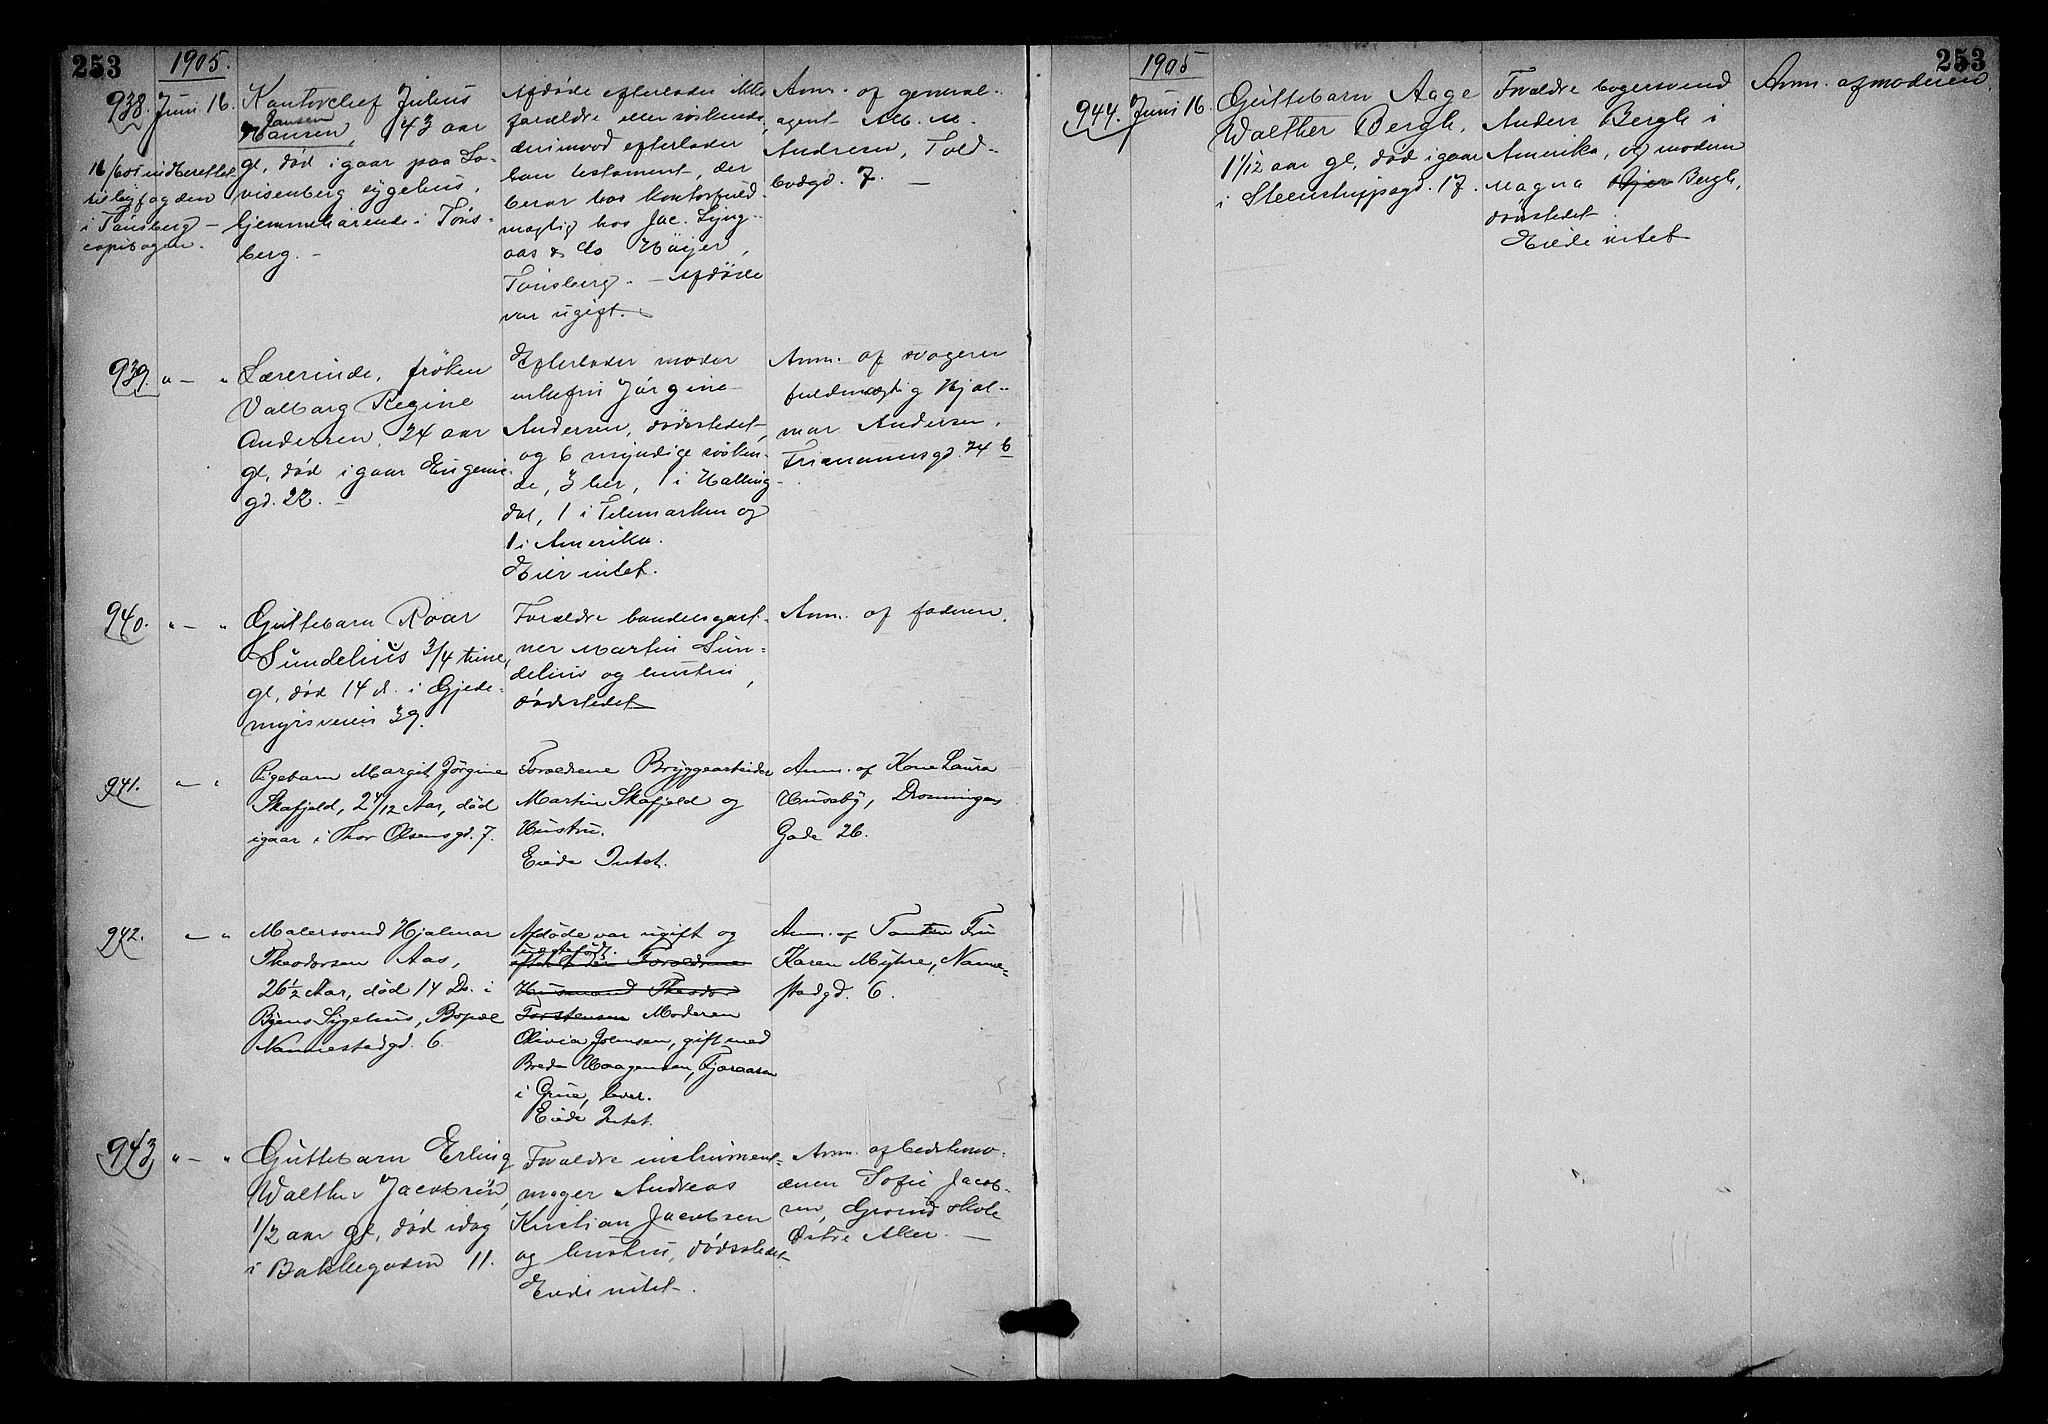 253
1905.
938. Juni 16.
Kontorchef Julius
Jansen
Hansen, 43 aar
gl, død igaar paa Lo-
visenberg sygehus,
hjemmehørende i Tøns-
berg. -
16/6 05 indberettet
til byfogden
i Tønsberg -
copibogen.
Afdøde efterlader ikke
forældre eller søskende,
derimod efterlader
han testament, der
beror hos kontorfuld-
mægtig hos Jac. Lyng-
aas & Co Høijer,
Tønsberg. - Afdøde
var ugift. -
Anm. af general-
agent Alb. M.
Andresen, Told-
bodgd. 7. -
939. " - "
Lærerinde, frøken
Valborg Regine
Andersen, 24 aar
gl, død igaar Eugenie
gd. 22. -
Efterlader moder
enkefru Jørgine
Andersen, dødsstedet,
og 6 myndige søsken-
de, 3 her, 1 i Halling-
dal, 1 i Telemarken og
1 i Amerika.
Eier intet.
Anm. af svogeren
fuldmægtig Hjal-
mar Andersen,
Frimannsgd. 24 b
940. " - "
Guttebarn Roar
Sundelius 3/4 time
gl, død 14 d. i Gjede-
myrsveien 39.
Forældre handelsgart-
ner Martin Sun-
delius og hustru,
dødsstedet
Anm. af faderen.
941. " - "
Pigebarn Margit Jørgine
Skafjeld, 2 4/12 Aar, død
igaar i Thor Olsensgd. 7.
Forældrene Bryggearbeider
Martin Skafjeld og
Hustru.
Eiede Intet.
Anm. af Kone Laura
Huseby, Dronningens
Gade 26.
942. - "
Malersvend Hjalmar
Theodorsen Aas,
26 1/2 Aar, død 14 Ds. i
Byens Sygehus, Bopæl
Nannestadgd. 6.
Afdøde var ugift og
uægtefødt.
efterlader Forældrene
Husmand Theodor
Torstensen Moderen
Olivia Johnsen, gift med
Brede Haagensen, Fjøraasen
i Grue, lever.
Eiede Intet.
Anm. af Tanten Fru
Karen Myhre, Nanne-
stadgd. 6.
943. " - "
Guttebarn Erling
Walther Jacobsen,
1/2 aar gl, død idag
i Bakkegaden 11.
Forældre instrument-
mager Andreas
Kristian Jacobsen
og hustru, dødsstedet.
Eiede intet.
Anm. af bedstemo-
deren Sofie Jacob-
sen, Grønd skole
Østre Aker. -
253
1905
944. Juni 16.
Guttebarn Aage
Walther Bergh,
1 1/12 aar gl, død igaar
i Steenstrupsgd. 17.
Forældre bagersvend
Anders Bergh i
Amerika, og moderen
Magna Bergh,
dødsstedet.
Eiede intet
Anm. af moderen.